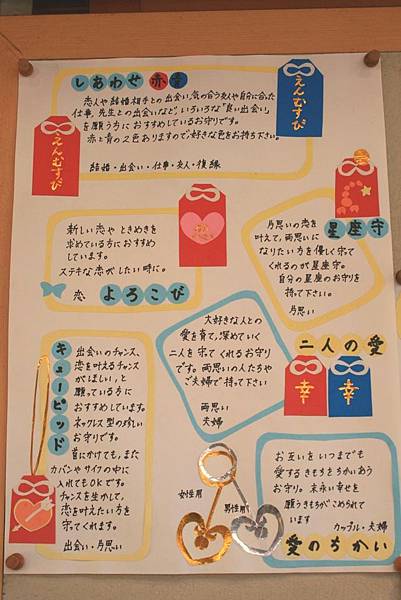 しあわせ 赤・青
恋人や結婚相手との出会い、気の合う友や自分に合った
仕事、先生との出会いなど、いろいろな「良い出会い」
を願う方におすすめしているお守りです。
赤と青の2色ありますので好きな色をお持ち下さい。
結婚・出会い・仕事・友人・復縁
えんむすび
えんむすび
新しい恋やときめきを
求めている方におすすめ
しています。
ステキな恋がしたい時に。
恋 よろこび
片思いの恋を
叶えて、両思いに
なりたい方を優しく守って
くれるのが星座守。
自分の星座のお守りを
持って下さい。
片思い
星座守
キューピッド
出会いのチャンス、
恋を叶えるチャンス
がほしい、と
願っている方に
おすすめしています。
ネックレス型の珍しい
お守りです。
首にかけても、また
カバンやサイフの中に
入れてもOKです。
チャンスを生かして、
恋を叶えたい方を
守ってくれます。
出会い・片思い
大好きな人との
愛を育て、深めていく
二人を守ってくれるお守り
です。両思いの人たちや
ご夫婦で持って下さい
両思い
夫婦
二人の愛
幸
幸
女性用
男性用
お互いをいつまでも
愛するきもちをちかいあう
お守り。末永い幸せを
願うきもちがこめられて
います
カップル・夫婦
愛のちかい